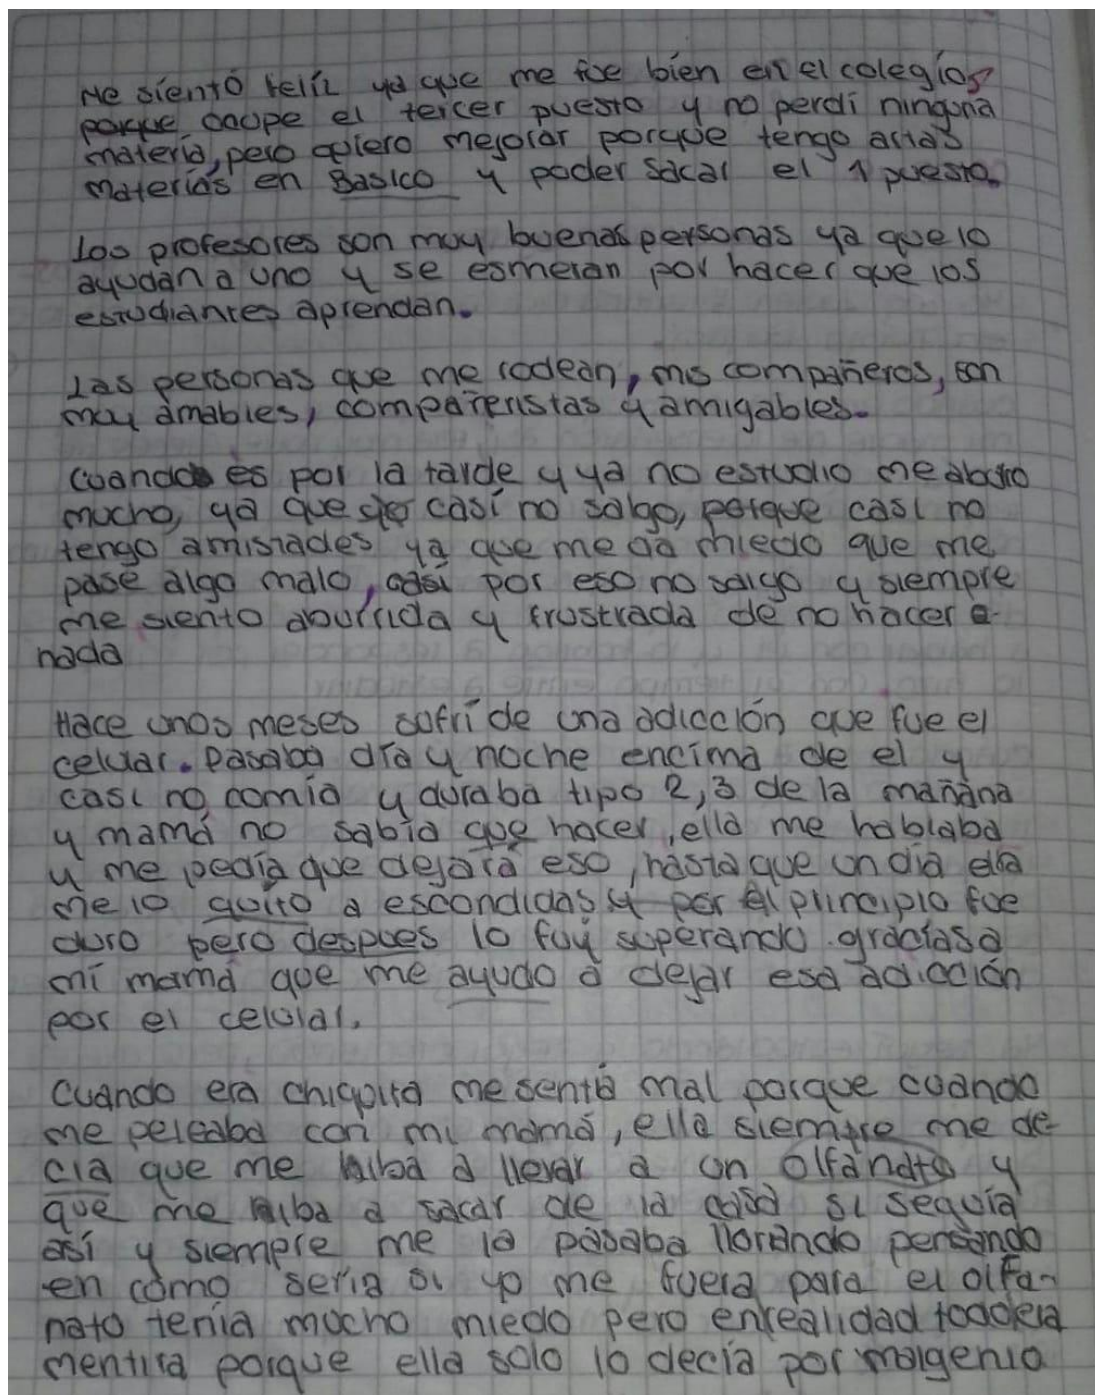 Me siento feliz ya que me fue bien en el colegio,
porque ocupe el tercer puesto y no perdi ninguna
materia, pero quiero mejorar porque tengo artas
materias en Basico y poder sacar el 1 puesto.
Los profesores son muy buenas personas ya que lo
ayudan a uno y se esmeran por hacer que los
estudiantes aprendan.
Las personas que me rodean, mis compañeros, son
muy amables, compañeristas y amigables.
Cuando es por la tarde y ya no estudio me aburro
mucho, ya que casi no salgo, porque casi no
tengo amistades ya que me da miedo que me
pase algo malo, por eso no salgo y siempre
me siento aburrida y frustrada de no hacer
nada
Hace unos meses sufrí de una adicción que fue el
celular. Pasaba día y noche encima de el y
casi no comia y duraba tipo 2,3 de la mañana
y mamá no sabia que hacer, ella me hablaba
y me pedía que dejara eso, hasta que un dia ella
me lo quito a escondidas y por el principio fue
duro pero despues lo fuy superando gracias a
mi mamá que me ayudo a dejar esa adicción
por el celular.
Cuando era chiquita me sentia mal porque cuando
me peleaba con mi mamá, ella siempre me de
cia que me iba a llevar a un olfanato y
que me iba a sacar de la casa si seguía
así y siempre me la pasaba llorando pensando
en cómo seria si yo me fuera para el olfa-
nato tenía mucho miedo pero enrealidad todo era
mentira porque ella solo lo decía por malgenio